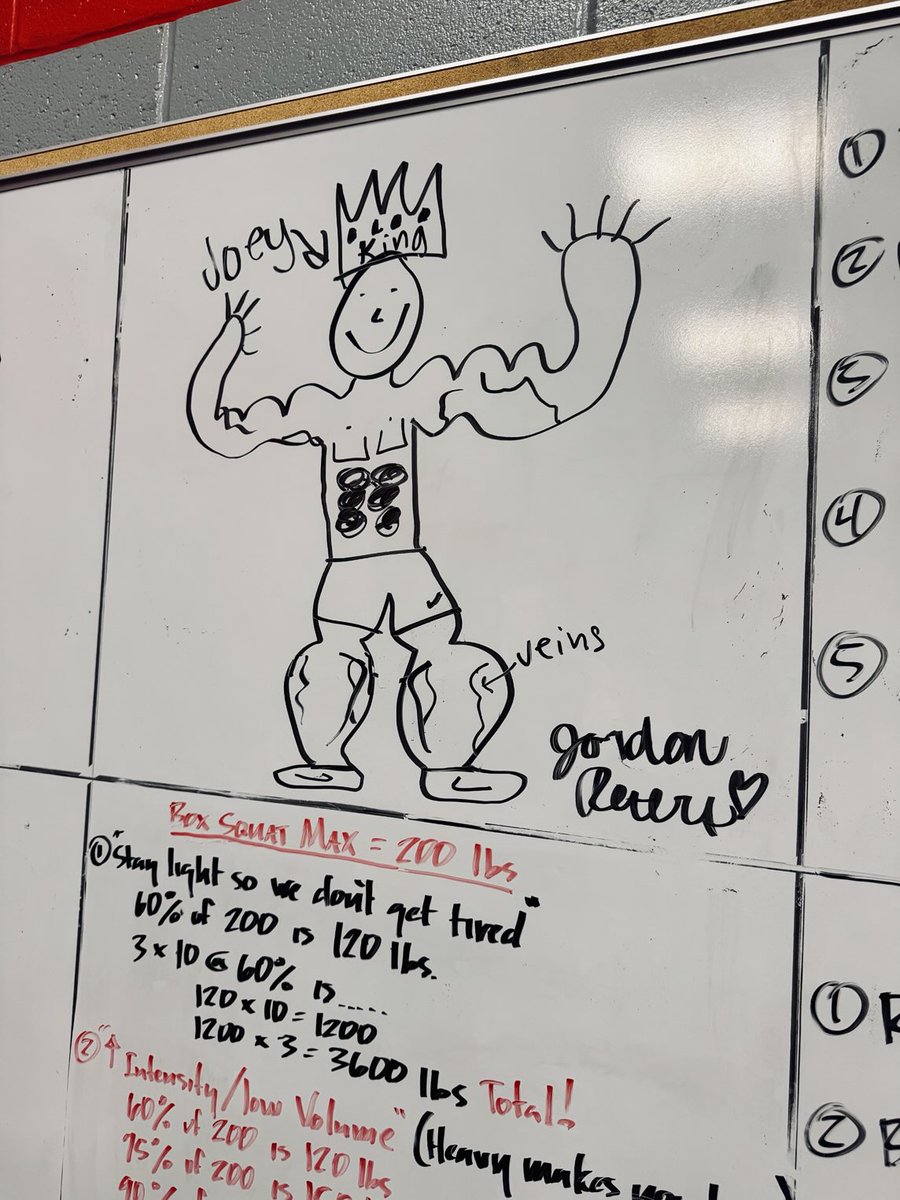 Joey
King
veins
Jordan
Box Squat Max = 200 lbs
① "Stay light so we don't get tired"
60% of 200 is 120 lbs.
3 x 10 @ 60% is .....
120 x 10 = 1200
1200 x 3 = 3600 lbs Total!
② "↑ Intensity/low Volume" (Heavy makes
60% of 200 is 120 lbs
75% of 200 is
90%
①
②
③
④
⑤
①
②